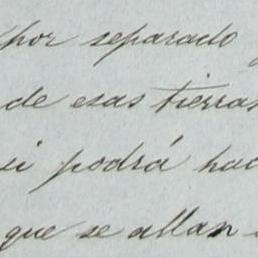 por separado
de esas tierras
podrá hac
que se allan